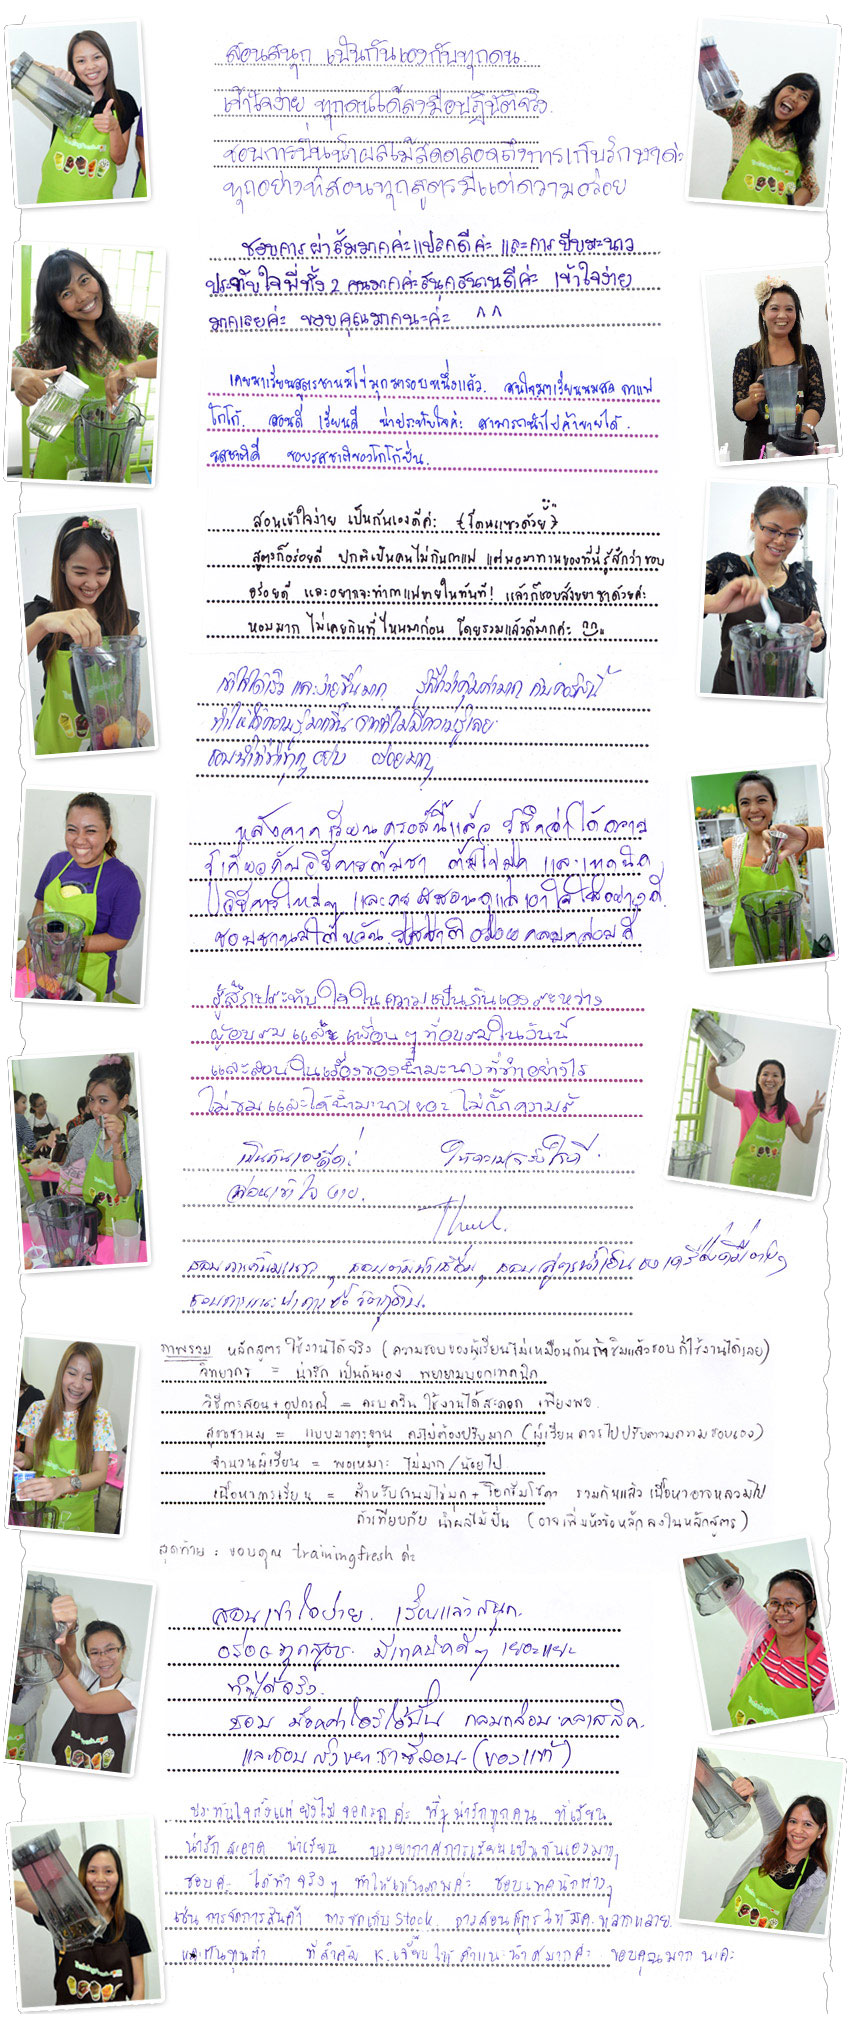 สอนสนุก เป็นกันเองกับทุกคน
เข้าใจง่าย ทุกคนได้ลงมือปฏิบัติจริง
ชอบการปั่นน้ำผลไม้สดตลอดถึงการเก็บรักษาค่ะ
ทุกอย่างที่สอนทุกสูตรมีแต่ความอร่อย
ชอบการผ่าส้มมากค่ะแปลกดีค่ะ และการบีบมะนาว
ประทับใจพี่ทั้ง 2 คนมากค่ะสนุกสนานดีค่ะ เข้าใจง่าย
มากเลยค่ะ ขอบคุณมากนะค่ะ ^^
เคยมาเรียนสูตรชานมไข่มุกมารอบหนึ่งแล้ว. สนใจมาเรียนนมสด กาแฟ
โกโก้. สอนดี เรียนดี น่าประทับใจค่ะ สามารถนำไปค้าขายได้.
รสชาติดี ชอบรสชาติของโกโก้ปั่น.
สอนเข้าใจง่าย เป็นกันเองดีค่ะ (โดนแซวด้วย)
สูตรก็อร่อยดี ปกติเป็นคนไม่กินกาแฟ แต่พอมาทานของที่นี่รู้สึกว่าชอบ
อร่อยดี และอยากจะทำกาแฟขายในทันที! แล้วก็ชอบสังขยาชาด้วยค่ะ
หอมมาก ไม่เคยกินที่ไหนมาก่อน โดยรวมแล้วดีมากค่ะ
เข้าใจได้เร็ว และง่ายขึ้นมาก รู้สึกว่าคุ้มค่ามาก กับคอร์สนี้
ทำให้ได้ความรู้มากขึ้น จากที่ไม่มีความรู้เลย
ชอบน้ำ อร่อยมาก
หลังจากเรียนคอร์สนี้แล้ว รู้สึกว่าได้ความ
รู้เกี่ยวกับวิธีการต้มชา ต้มไข่มุก และเทคนิค
วิธีการใหม่ๆ และครูผู้สอนดูแลเอาใจใส่อย่างดี
ชอบชานมไต้หวัน รสชาติอร่อยกลมกล่อมดี
รู้สึกประทับใจในความเป็นกันเองระหว่าง
ผู้อบรมและเพื่อนๆ ที่อบรมในวันนี้
และสอนในเรื่องของน้ำมะนาวที่ทำอย่างไร
ไม่ขมและได้น้ำมะนาวเยอะ ไม่กั๊กความรู้
เป็นกันเองดีค่ะ ให้ความรู้ดี
สอนเข้าใจง่าย.
ชอบสูตรน้ำปั่นของเครื่องดื่มต่างๆ
ชอบการแนะนำการซื้อวัตถุดิบ.
ภาพรวม หลักสูตรใช้งานได้จริง (ความชอบของผู้เรียนไม่เหมือนกัน ถ้าชิมแล้วชอบก็ใช้งานได้เลย)
วิทยากร = น่ารัก เป็นกันเอง พยายามบอกเทคนิค
วิธีการสอน+อุปกรณ์ = ครบครัน ใช้งานได้สะดวก เพียงพอ
สูตรชานม = แบบมาตรฐาน คงไม่ต้องปรับมาก (ผู้เรียนควรไปปรับตามความชอบเอง)
จำนวนผู้เรียน = พอเหมาะ ไม่มาก/น้อยไป
เนื้อหาการเรียน = สำหรับชานมไข่มุก+ไอศกรีมโซดา รวมกันแล้ว เนื้อหาอาจหลวมไป
ถ้าเทียบกับ น้ำผลไม้ปั่น (อาจเพิ่มหัวข้อหลักลงในหลักสูตร)
สุดท้าย : ขอบคุณ trainingfresh ค่ะ
สอนเข้าใจง่าย. เรียนแล้วสนุก.
อร่อยทุกสูตร. มีเทคนิคดีๆ เยอะแยะ
ทำได้จริง.
ชอบ ม็อคค่าโอริโอ้ปั่น กลมกล่อม คลาสสิค.
และชอบสังขยาชาซีลอน (ของแท้)
ประทับใจตั้งแต่ยังไม่จอดรถค่ะ พี่ๆ น่ารักทุกคน ที่เรียน
น่ารัก สะอาด น่าเรียน บรรยากาศการเรียนเป็นกันเองมากๆ
ชอบค่ะ ได้ทำจริงๆ ทำให้เห็นภาพค่ะ ชอบเทคนิคต่างๆ
เช่น การจัดการสินค้า การจัดเก็บ Stock การสอนสูตรให้มีความหลากหลาย.
และต้นทุนต่ำ ที่สำคัญ K.เจี๊ยบให้คำแนะนำดีมากค่ะ ขอบคุณมากนะคะ